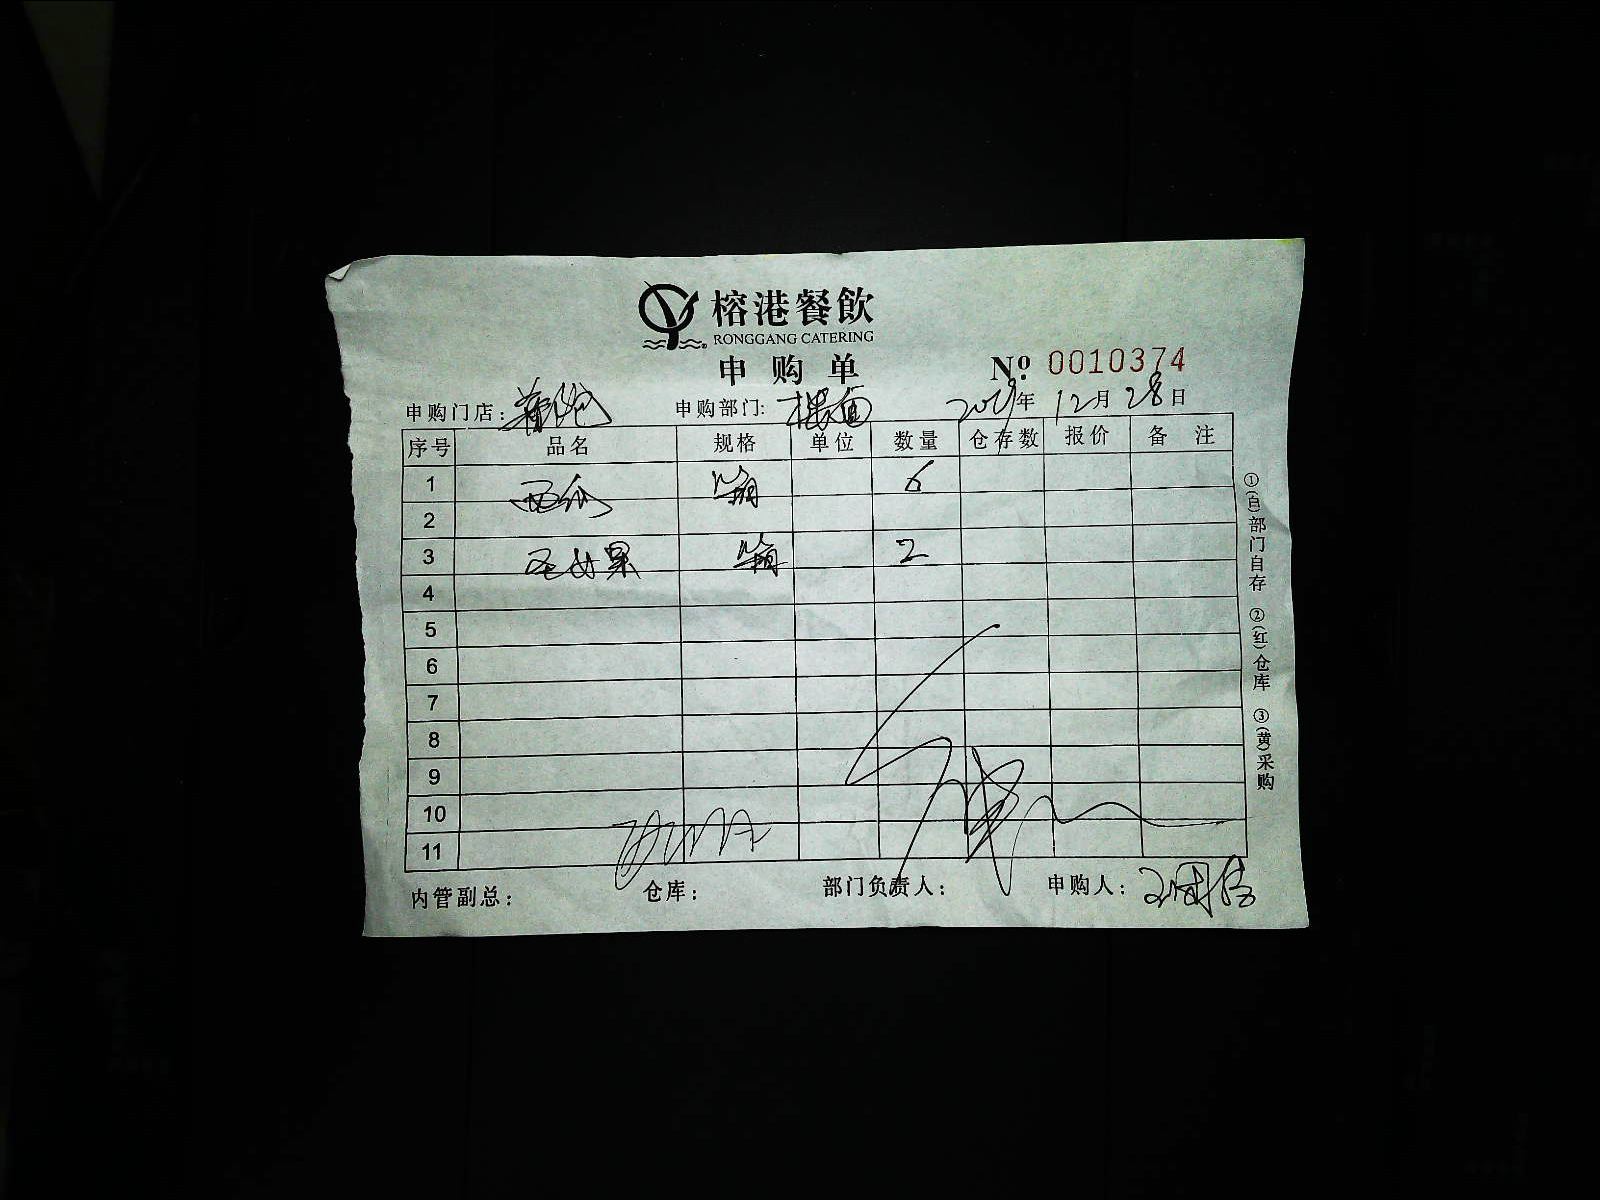 榕港餐飲
RONGGANG CATERING
申购单
№ 0010374
申购门店: 申购部门: 楼面 2019年12月28日
序号 品名 规格 单位 数量 仓存数 报价 备注
1 西瓜 箱 6
2
3 圣女果 箱 2
4
5
6
7
8
9
10
11
内管副总: 仓库: 部门负责人: 申购人:
①(白)部门自存 ②(红)仓库 ③(黄)采购